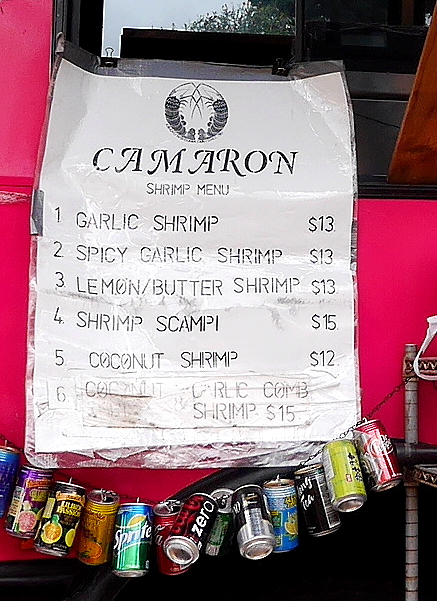 CAMARON
SHRIMP MENU
1 GARLIC SHRIMP $13.
2. SPICY GARLIC SHRIMP $13
3. LEMON/BUTTER SHRIMP $13.
4. SHRIMP SCAMPI $15.
5. COCONUT SHRIMP $12.
6. COCONUT GARLIC COMB
SHRIMP $15
Sprite
zero